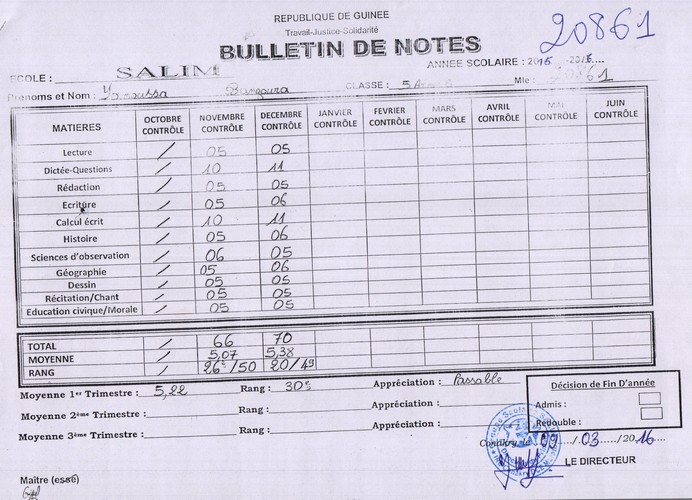 REPUBLIQUE DE GUINEE
Travail-Justice-Solidarité
20861
BULLETIN DE NOTES
ECOLE : SALIM ANNEE SCOLAIRE : 2015 -2016....
Prénoms et Nom : Bangoura CLASSE : 5 Mle : 20861
MATIERES OCTOBRE CONTRÔLE NOVEMBRE CONTRÔLE DECEMBRE CONTRÔLE JANVIER CONTRÔLE FEVRIER CONTRÔLE MARS CONTRÔLE AVRIL CONTRÔLE MAI CONTRÔLE JUIN CONTRÔLE
Lecture / 05 05
Dictée-Questions / 10 11
Rédaction / 05 05
Ecriture / 05 06
Calcul écrit / 10 11
Histoire / 05 06
Sciences d'observation / 06 05
Géographie / 05 06
Dessin / 05 05
Récitation/Chant / 05 05
Education civique/Morale / 05 05
TOTAL / 66 70
MOYENNE / 5,07 5,38
RANG / 26e/50 20/49
Moyenne 1er Trimestre : 5,22 Rang : 30e Appréciation : Passable
Moyenne 2ème Trimestre : Rang : Appréciation :
Moyenne 3ème Trimestre : Rang : Appréciation :
Décision de Fin D'année
Admis :
Redouble :
Conakry, le 09/03/2016
LE DIRECTEUR
Maître (esse)